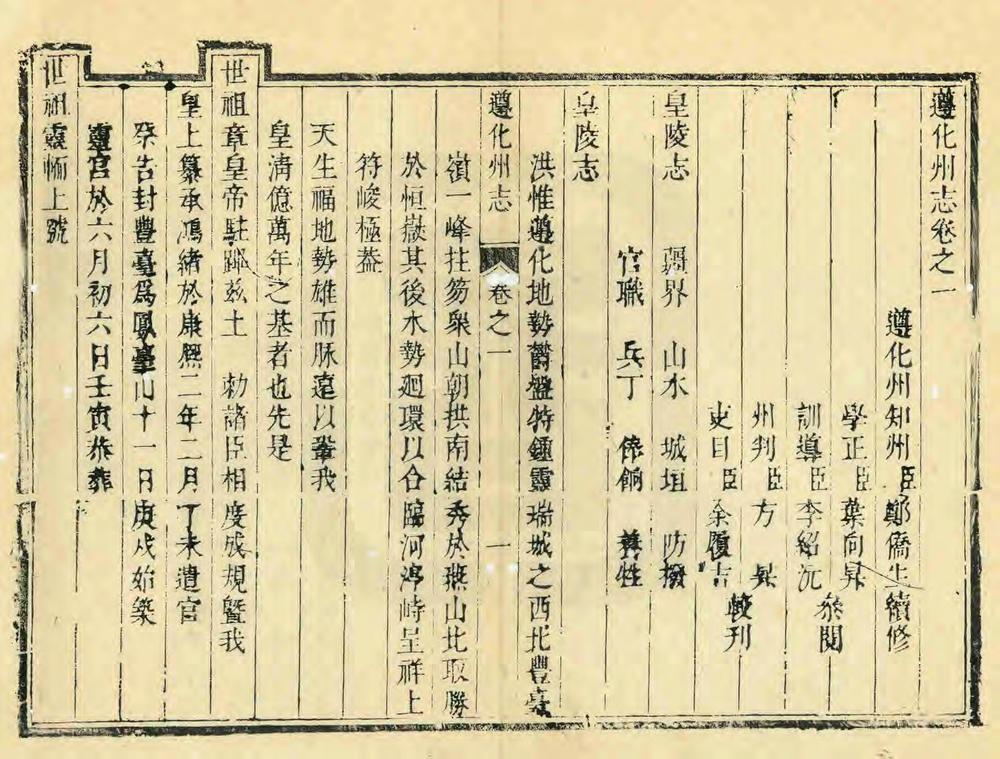 遵化州志卷之一
遵化州知州臣鄭僑生續修
學正臣葉向昇
訓導臣李紹沆
叅閱
州判臣方昇
吏目臣余履吉
較刊
皇陵志 疆界 山水 城垣 防撥
官職 兵丁 俸餉 養牲
皇陵志
洪惟遵化地勢欝盤特鍾靈瑞城之西北豐臺
遵化州志 卷之一 一
嶺一峰拄笏衆山朝拱南結秀於燕山北取勝
於恒嶽其後水勢廻環以合臨河渟峙呈祥上
符峻極葢
天生福地勢雄而脉遠以鞏我
皇淸億萬年之基者也先是
世祖章皇帝駐蹕兹土 勅諸臣相度成規曁我
皇上纂承鴻緒於康熈二年二月丁未遣官
祭告封豐臺爲鳳臺山十一日庚戌始築
靈宫於六月初六日壬寅恭葬
世祖
上號